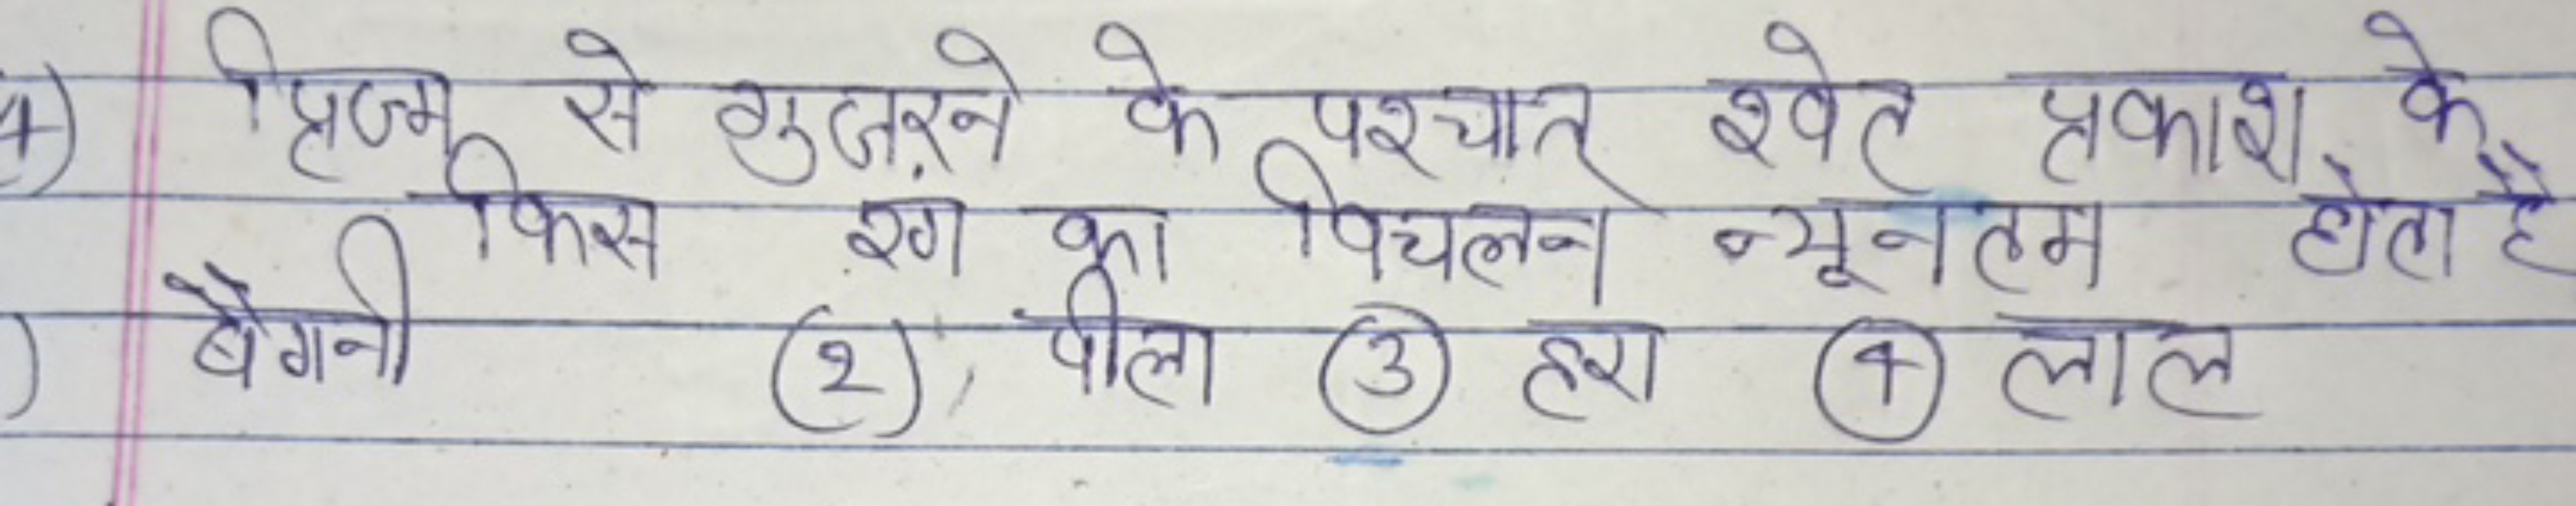 4) प्रिज्म से गुजरने के पश्चात् श्वेत प्रकाश के
किस रंग का विचलन न्यूनतम होता है
) बैगनी (2), पीला (3) हरा (4) लाल